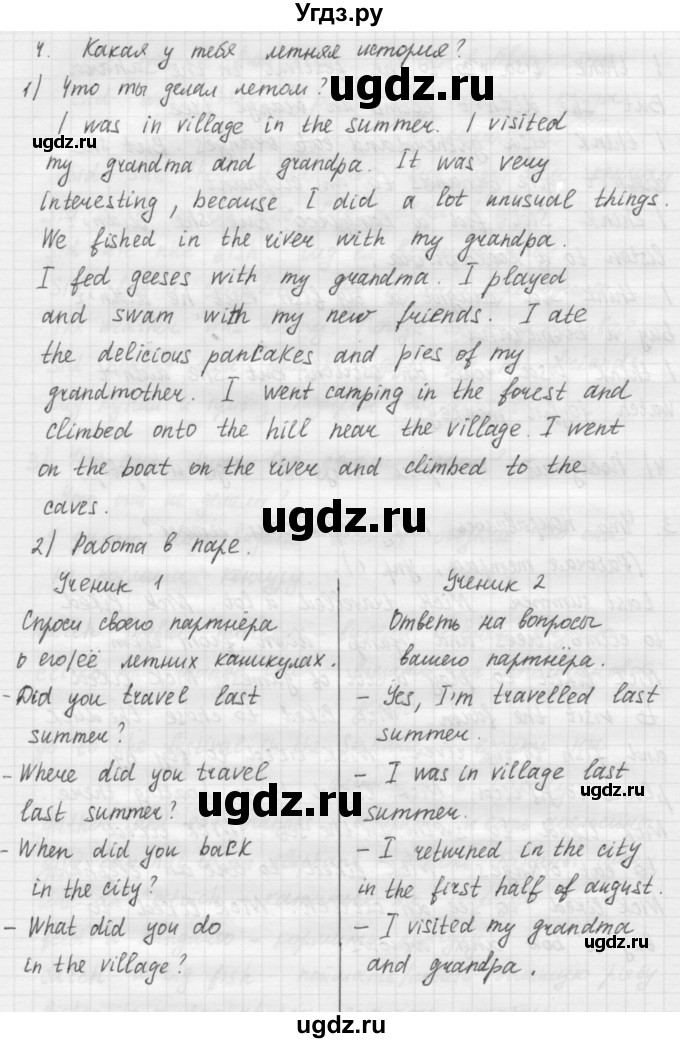 Угдз.ру
4. Какая у тебя летняя история?
1) Что ты делал летом?
I was in village in the summer. I visited
my grandma and grandpa. It was very
interesting, because I did a lot unusual things.
We fished in the river with my grandpa.
I fed geeses with my grandma. I played
and swam with my new friends. I ate
the delicious pancakes and pies of my
grandmother. I went camping in the forest and
climbed onto the hill near the village. I went
on the boat on the river and climbed to the
caves.
2) Работа в паре.
Ученик 1
Спроси своего партнёра
о его/её летних каникулах.
- Did you travel last
summer?
- Where did you travel
last summer?
- When did you back
in the city?
- What did you do
in the village?
Ученик 2
Ответь на вопросы
вашего партнёра.
- Yes, I'm travelled last
summer.
- I was in village last
summer.
- I returned in the city
in the first half of august.
- I visited my grandma
and grandpa.
ugdz.ru
ugdz.ru
ugdz.ru
ugdz.ru
ugdz.ru
ugdz.ru
ugdz.ru
ugdz.ru